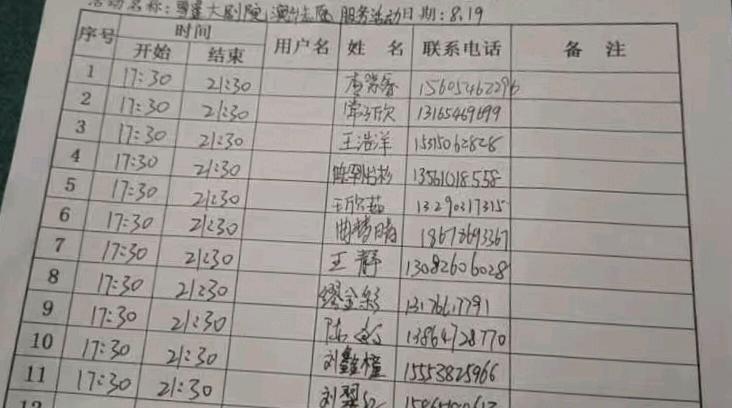 活动名称：雪蓮大剧院 演出志愿 服务活动日期：8.19
序号 时间 用户名 姓 名 联系电话 备 注
开始 结束
1 17:30 21:30 15605462296
2 17:30 21:30 13165469699
3 17:30 21:30 王浩洋 15315062828
4 17:30 21:30 13561018558
5 17:30 21:30 王欣茹 13290317315
6 17:30 21:30 曲精晴 18678693367
7 17:30 21:30 王静 13082606028
8 17:30 21:30 缪金彩
9 17:30 21:30 陈 13864728770
10 17:30 21:30 刘鑫橦 15553825966
11 17:30 21:30 刘翠红
12